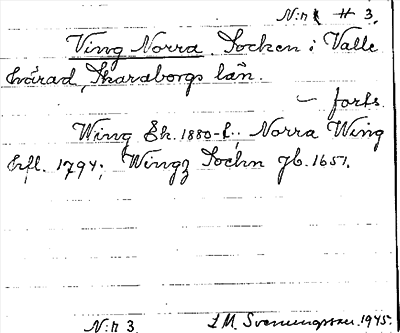 N:r 3.
Ving Norra. Socken i Valle
härad, Skaraborgs län.
– forts.
Wing Ek. 1880-t.; Norra Wing
hfl. 1794; Wingz Sochn jb. 1651.
N:r 3. S.M. Svenungsson. 1945.